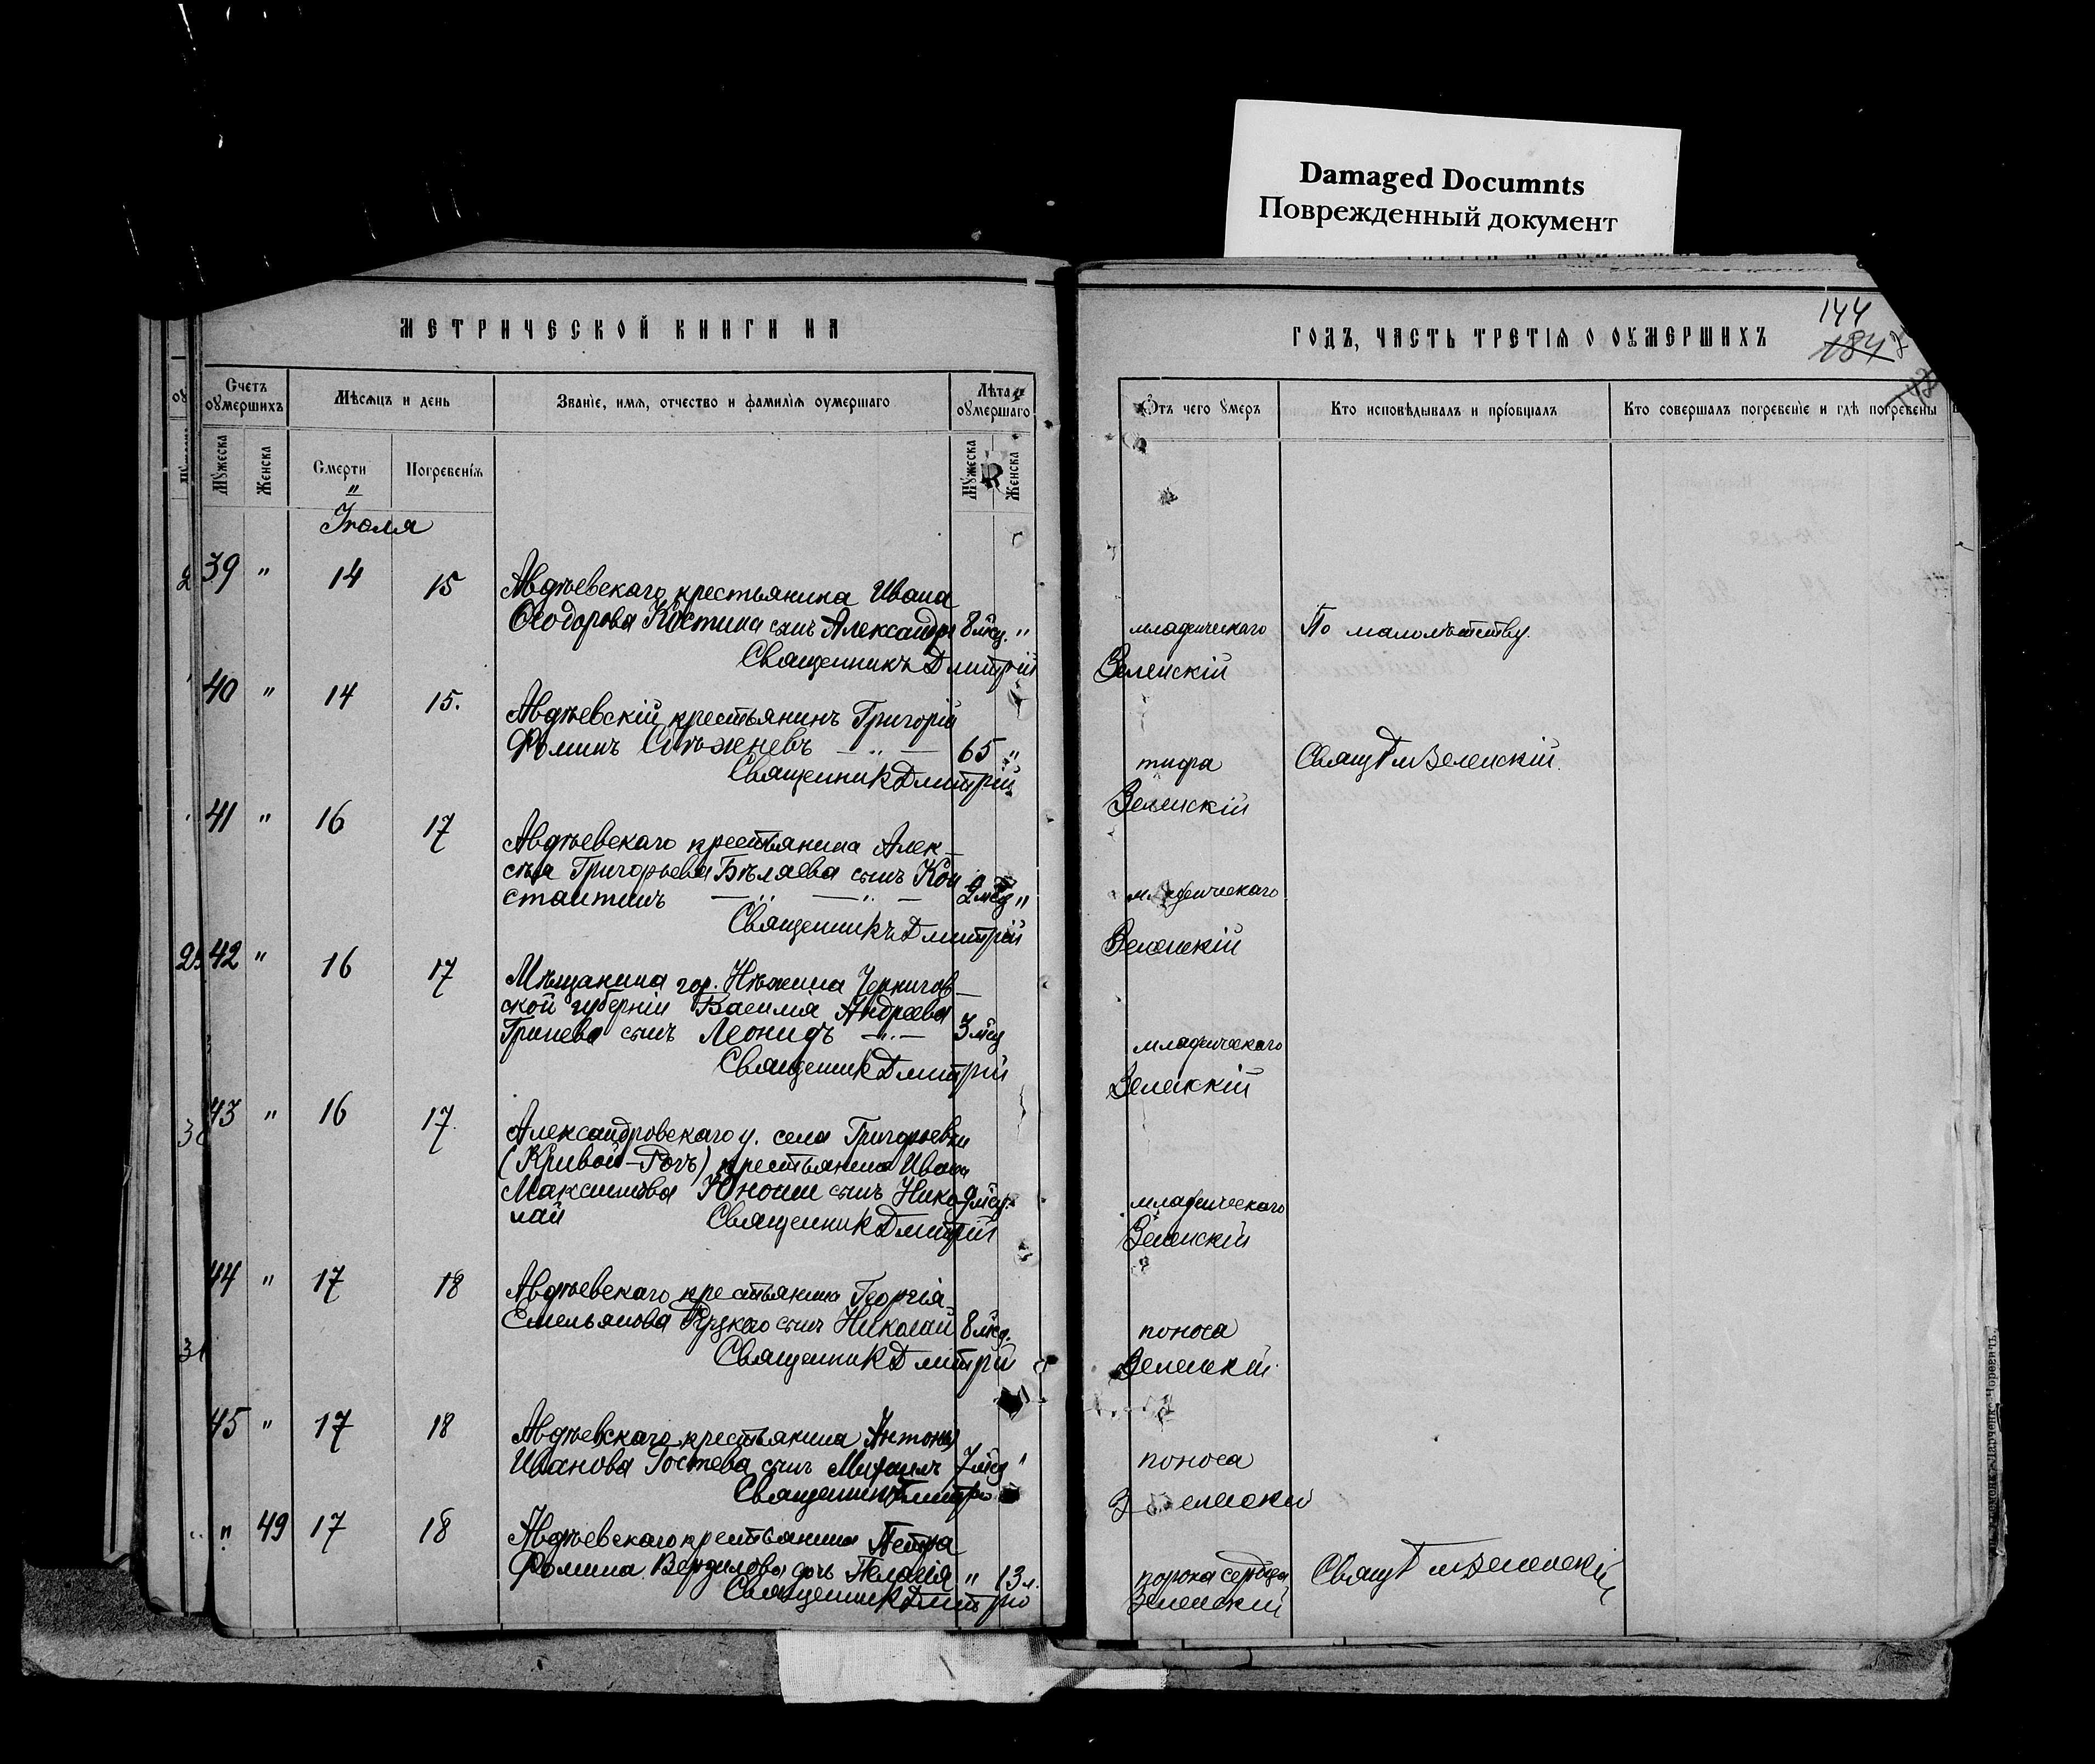 Damaged Documnts
Поврежденный документ
МЕТРИЧЕСКОЙ КНИГИ НА
ГОДЪ, ЧАСТЬ ТРЕТІЯ О ОУМЕРШИХЪ
144
184
Счетъ оумершихъ
Мѣсяцъ и день
Званіе, имя, отчество и фамилія оумершаго
Лѣта оумершаго
Отъ чего умеръ
Кто исповѣдывалъ и пріобщалъ
Кто совершалъ погребеніе и гдѣ погребены
Мужеска
Женска
Смерти
Погребенія
Мужеска
Женска
Іюля
39 " 14 15 Авдѣевскаго крестьянина Ивана
Ѳеодорова Костина сынъ Александръ 8 мѣс. " младенческаго По малолѣтству.
Священникъ Дмитрій Зеленскій
40 " 14 15. Авдѣевскій крестьянинъ Григорій
Ѳоминъ 65 " тифа Свящ Дм Зеленскій.
Священник Дмитрій Зеленскій
41 " 16 17 Авдѣевскаго крестьянина Алек-
сѣя Григорьева Бѣляева сынъ Кон
стантинъ 9 мѣс " младенческаго
Священникъ Дмитрій Зеленскій
42 " 16 17 Мѣщанина гор. Нѣжина Чернигов-
ской губерніи Василія Андреева
Гринева сынъ Леонидъ 3 мѣс младенческаго
Священник Дмитрій Зеленскій
43 " 16 17. Александровскаго у. села Григорьевки
(Кривой-Рогъ) крестьянина Ивана
Максимова Юноши сынъ Нико- 9 мѣс. младенческаго
лай Священник Дмитрій Зеленскій
44 " 17 18 Авдѣевскаго крестьянина Георгія
Емельянова сынъ Николай 8 мѣс. поноса
Священник Дмитрій Зеленскій.
45 " 17 18 Авдѣевскаго крестьянина Антона
Иванова Гостева сынъ Михаилъ 7 мѣс " поноса
Священник Дмитрій Зеленскій
" 49 17 18 Авдѣевскаго крестьянина Петра
Ѳомина дочь Пелагія " 13 л. порока сердца Свящ Дм Зеленскій
Священник Дмитрій Зеленскій